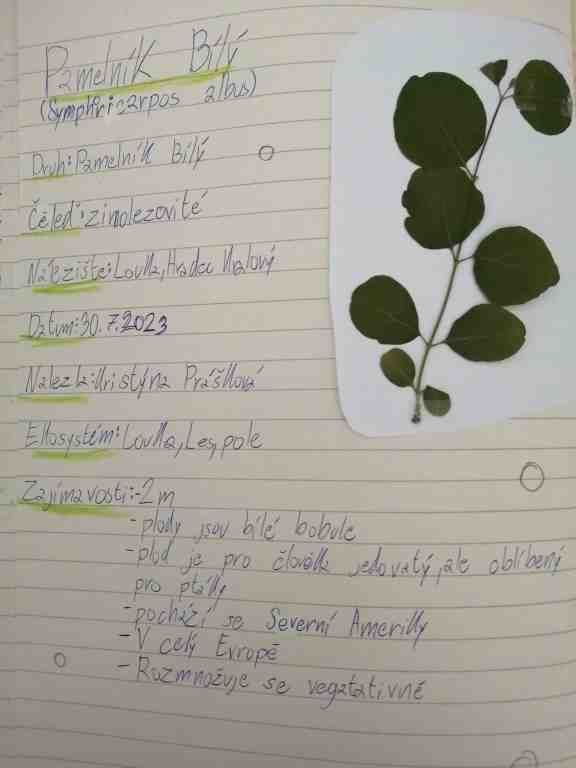 Pamelník Bílý
(Symphricarpos albus)
Druh: Pamelník Bílý
Čeleď: zimolezovité
Náleziště: Louka, Hradec Kralový
Datum: 30. 7. 2023
Nalezla: Kristýna Prášková
Ekosystém: Louka, Les, pole
Zajímavosti: -2m
- plody jsou bílé bobule
- plod je pro člověk jedovatý, ale oblíbený
pro ptáky
- pochází se Severní Ameriky
- V celý Evropě
- Rozmnožuje se vegatativně